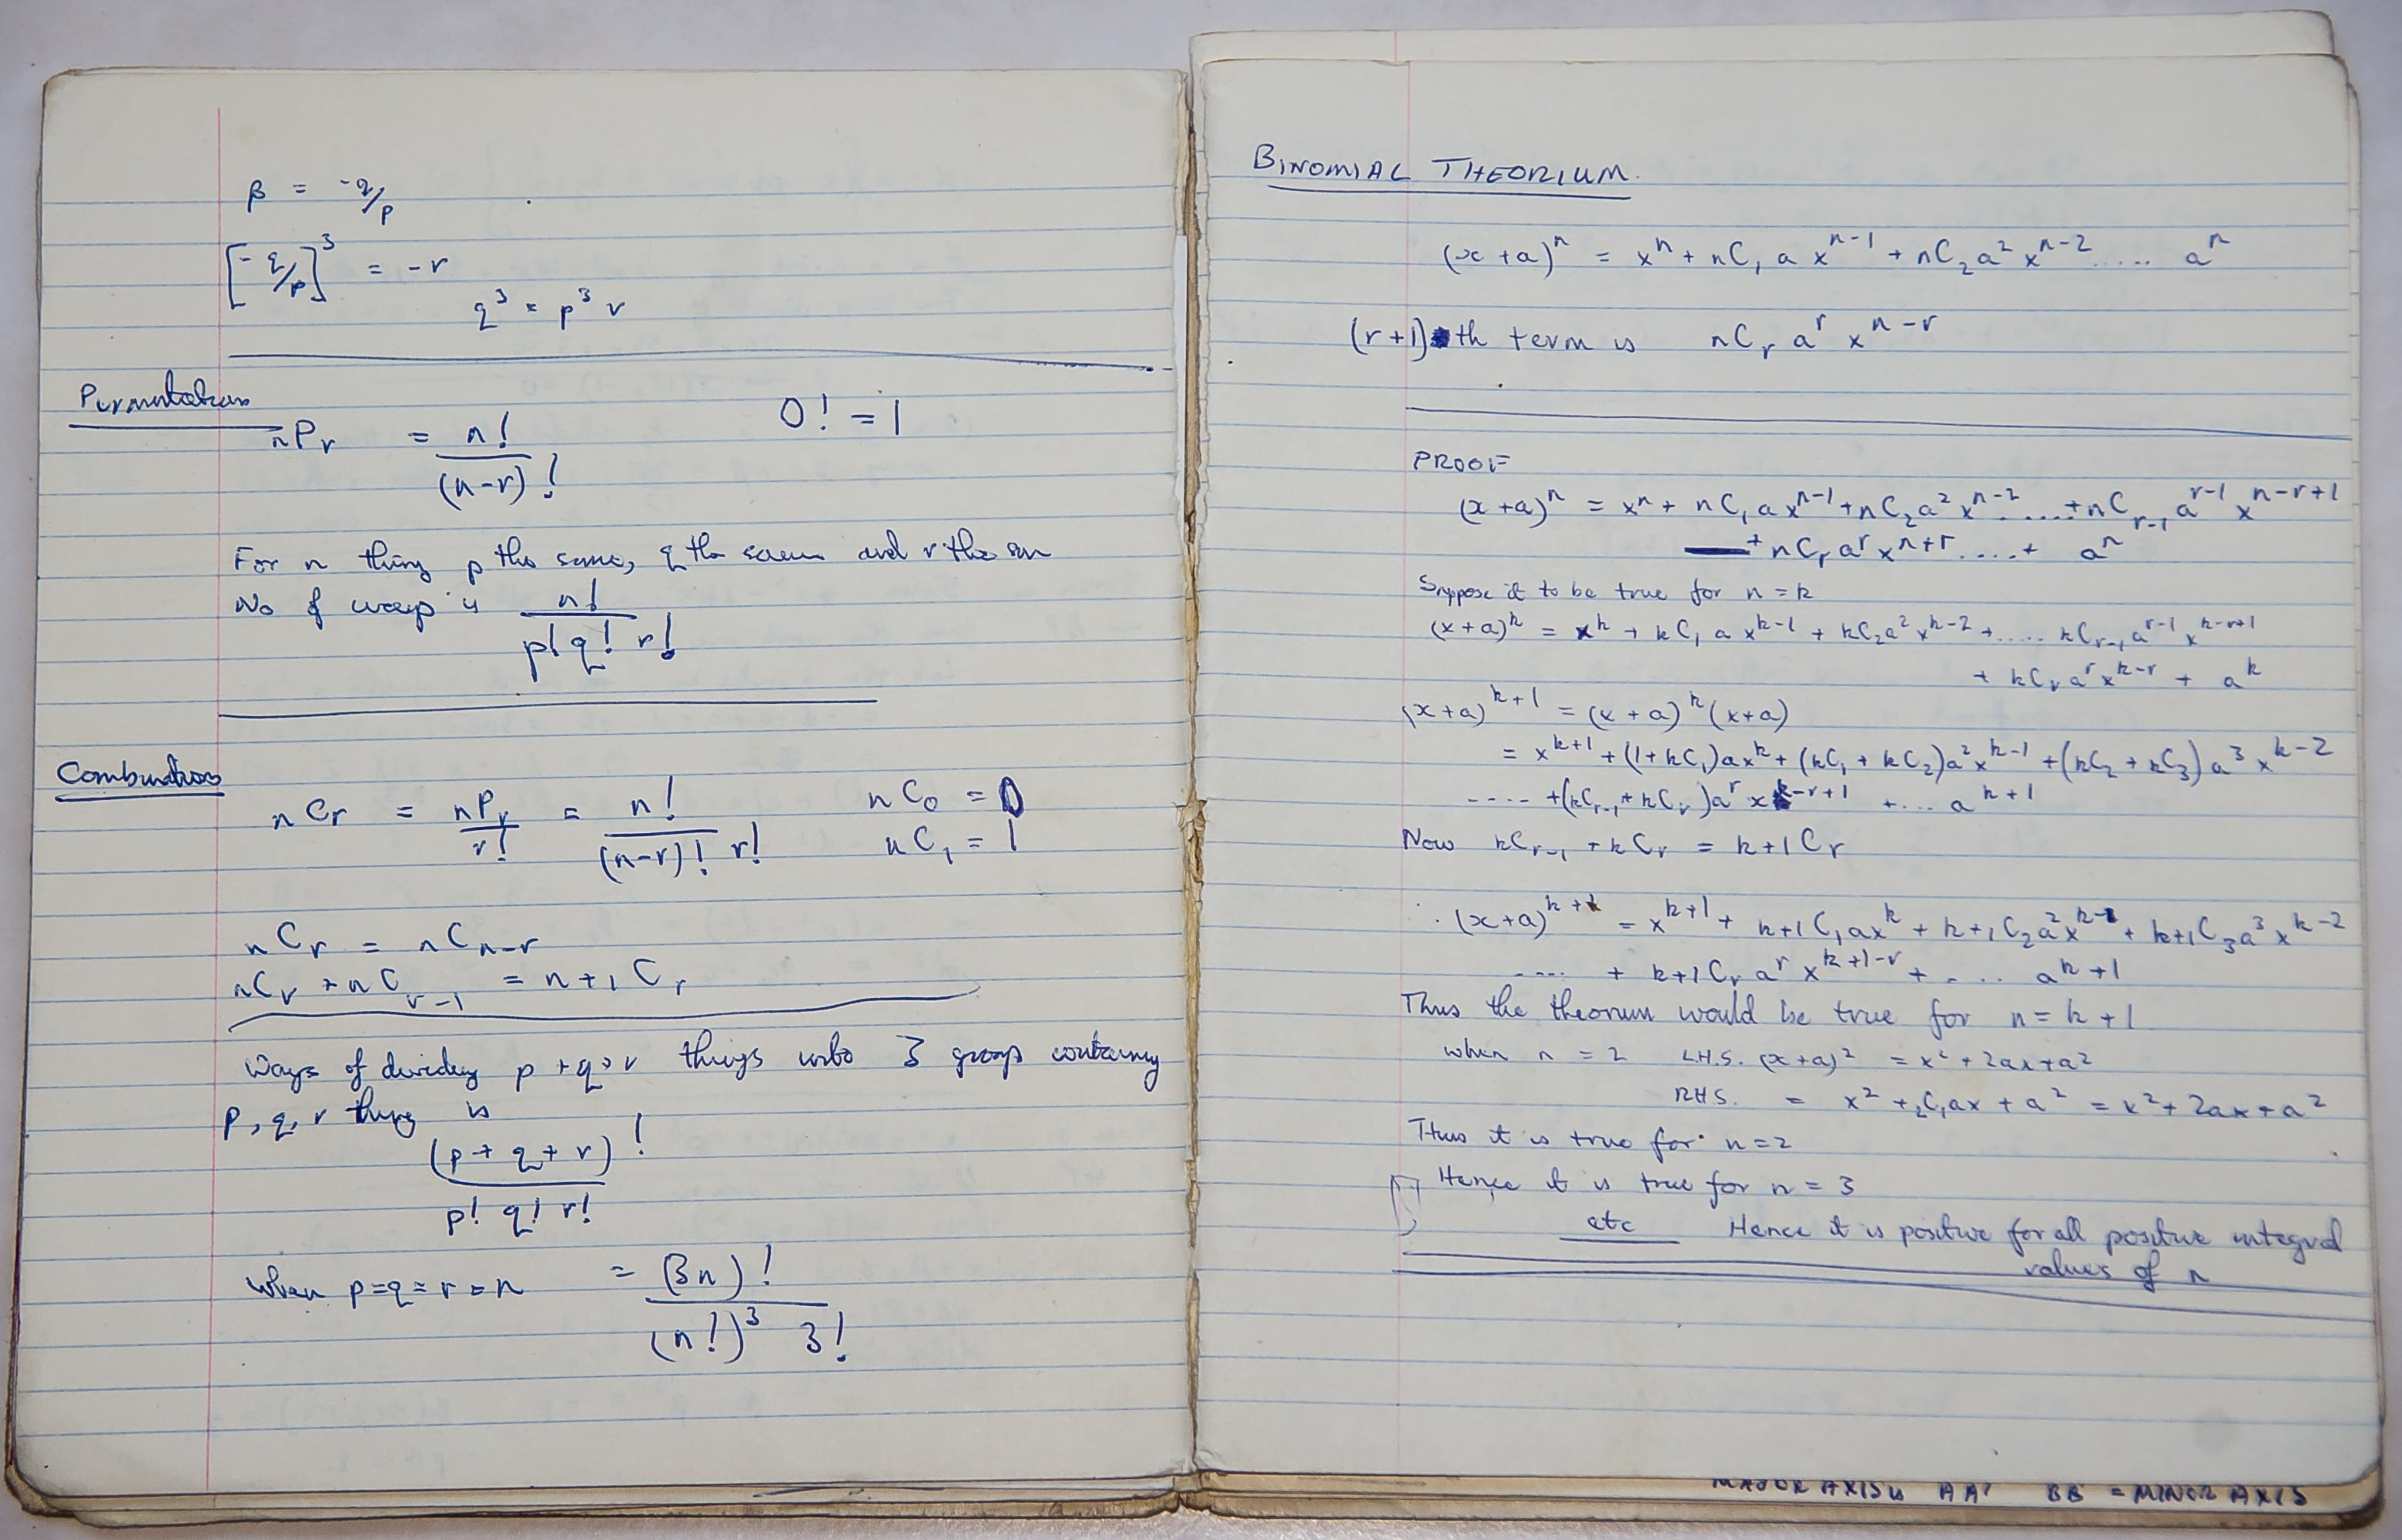 β = -q/p
[-q/p]³ = -r
q³ = p³ r
Permutations
nPr = n! / (n-r)!
0! = 1
For n thing p the same, q the same and r the same
No of ways is n! / p! q! r!
Combinations
nCr = nPr / r! = n! / (n-r)! r!
nC₀ = 0
nC₁ = 1
nCr = nCn-r
nCr + nCr-1 = n+1Cr
Ways of dividing p+q+r things into 3 groups containing
p, q, r thing is
(p+q+r)! / p! q! r!
When p=q=r=n = (3n)! / (n!)³ 3!
BINOMIAL THEORIUM.
(x+a)ⁿ = xⁿ + nC₁ a xⁿ⁻¹ + nC₂ a² xⁿ⁻² ..... aⁿ
(r+1)th term is nCr aʳ xⁿ⁻ʳ
PROOF
(x+a)ⁿ = xⁿ + nC₁ a xⁿ⁻¹ + nC₂ a² xⁿ⁻² ..... + nCr-1 aʳ⁻¹ xⁿ⁻ʳ⁺¹
+ nCr aʳ xⁿ⁺ʳ .... + aⁿ
Suppose it to be true for n = k
(x+a)ᵏ = xᵏ + kC₁ a xᵏ⁻¹ + kC₂ a² xᵏ⁻² + ..... kCr-1 aʳ⁻¹ xᵏ⁻ʳ⁺¹
+ kCr aʳ xᵏ⁻ʳ + aᵏ
(x+a)ᵏ⁺¹ = (x+a)ᵏ (x+a)
= xᵏ⁺¹ + (1+kC₁) a xᵏ + (kC₁ + kC₂) a² xᵏ⁻¹ + (kC₂ + kC₃) a³ xᵏ⁻²
.... + (kCr-1 + kCr) aʳ xᵏ⁻ʳ⁺¹ + ... aᵏ⁺¹
Now kCr-1 + kCr = k+1Cr
∴ (x+a)ᵏ⁺¹ = xᵏ⁺¹ + k+1C₁ a xᵏ + k+1C₂ a² xᵏ⁻¹ + k+1C₃ a³ xᵏ⁻²
.... + k+1Cr aʳ xᵏ⁺¹⁻ʳ + .... aᵏ⁺¹
Thus the theorum would be true for n = k+1
when n = 2 L.H.S. (x+a)² = x² + 2ax + a²
RHS. = x² + ₂C₁ax + a² = x² + 2ax + a²
Thus it is true for n=2
Hence it is true for n = 3
etc Hence it is positive for all positive integral
values of n
MAJOR AXIS is AA' BB' = MINOR AXIS